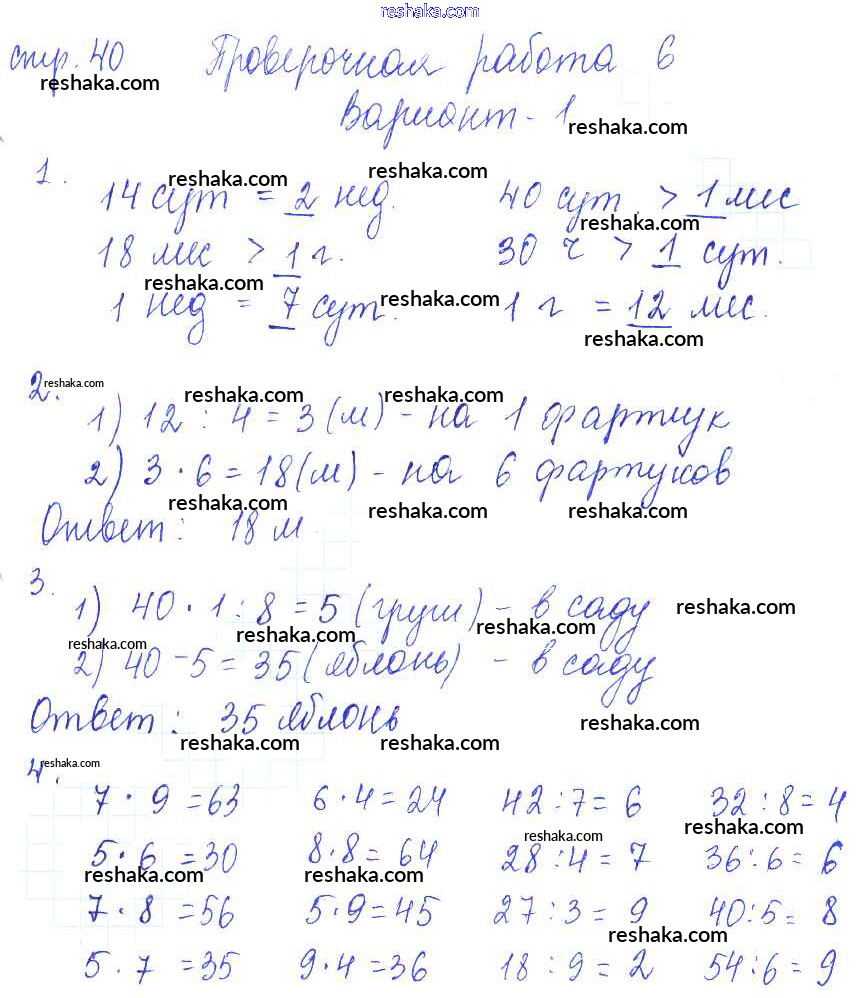 reshaka.com
стр. 40 Проверочная работа 6
reshaka.com
Вариант - 1
reshaka.com
1.
reshaka.com reshaka.com
14 сут = 2 нед. 40 сут. > 1 мес
reshaka.com reshaka.com
18 мес > 1 г. 30 ч > 1 сут.
reshaka.com reshaka.com reshaka.com
1 нед = 7 сут. 1 г = 12 мес.
reshaka.com
2. reshaka.com reshaka.com reshaka.com
1) 12 : 4 = 3 (м) - на 1 фартук
reshaka.com reshaka.com reshaka.com
2) 3 · 6 = 18 (м) - на 6 фартуков
reshaka.com reshaka.com reshaka.com
Ответ: 18 м
3.
1) 40 · 1 : 8 = 5 (груш) - в саду reshaka.com
reshaka.com reshaka.com reshaka.com
2) 40 - 5 = 35 (яблонь) - в саду
Ответ: 35 яблонь
reshaka.com reshaka.com reshaka.com
reshaka.com
4.
7 · 9 = 63 6 · 4 = 24 42 : 7 = 6 32 : 8 = 4
reshaka.com reshaka.com
5 · 6 = 30 8 · 8 = 64 28 : 4 = 7 36 : 6 = 6
reshaka.com reshaka.com reshaka.com
7 · 8 = 56 5 · 9 = 45 27 : 3 = 9 40 : 5 = 8
reshaka.com
5 · 7 = 35 9 · 4 = 36 18 : 9 = 2 54 : 6 = 9